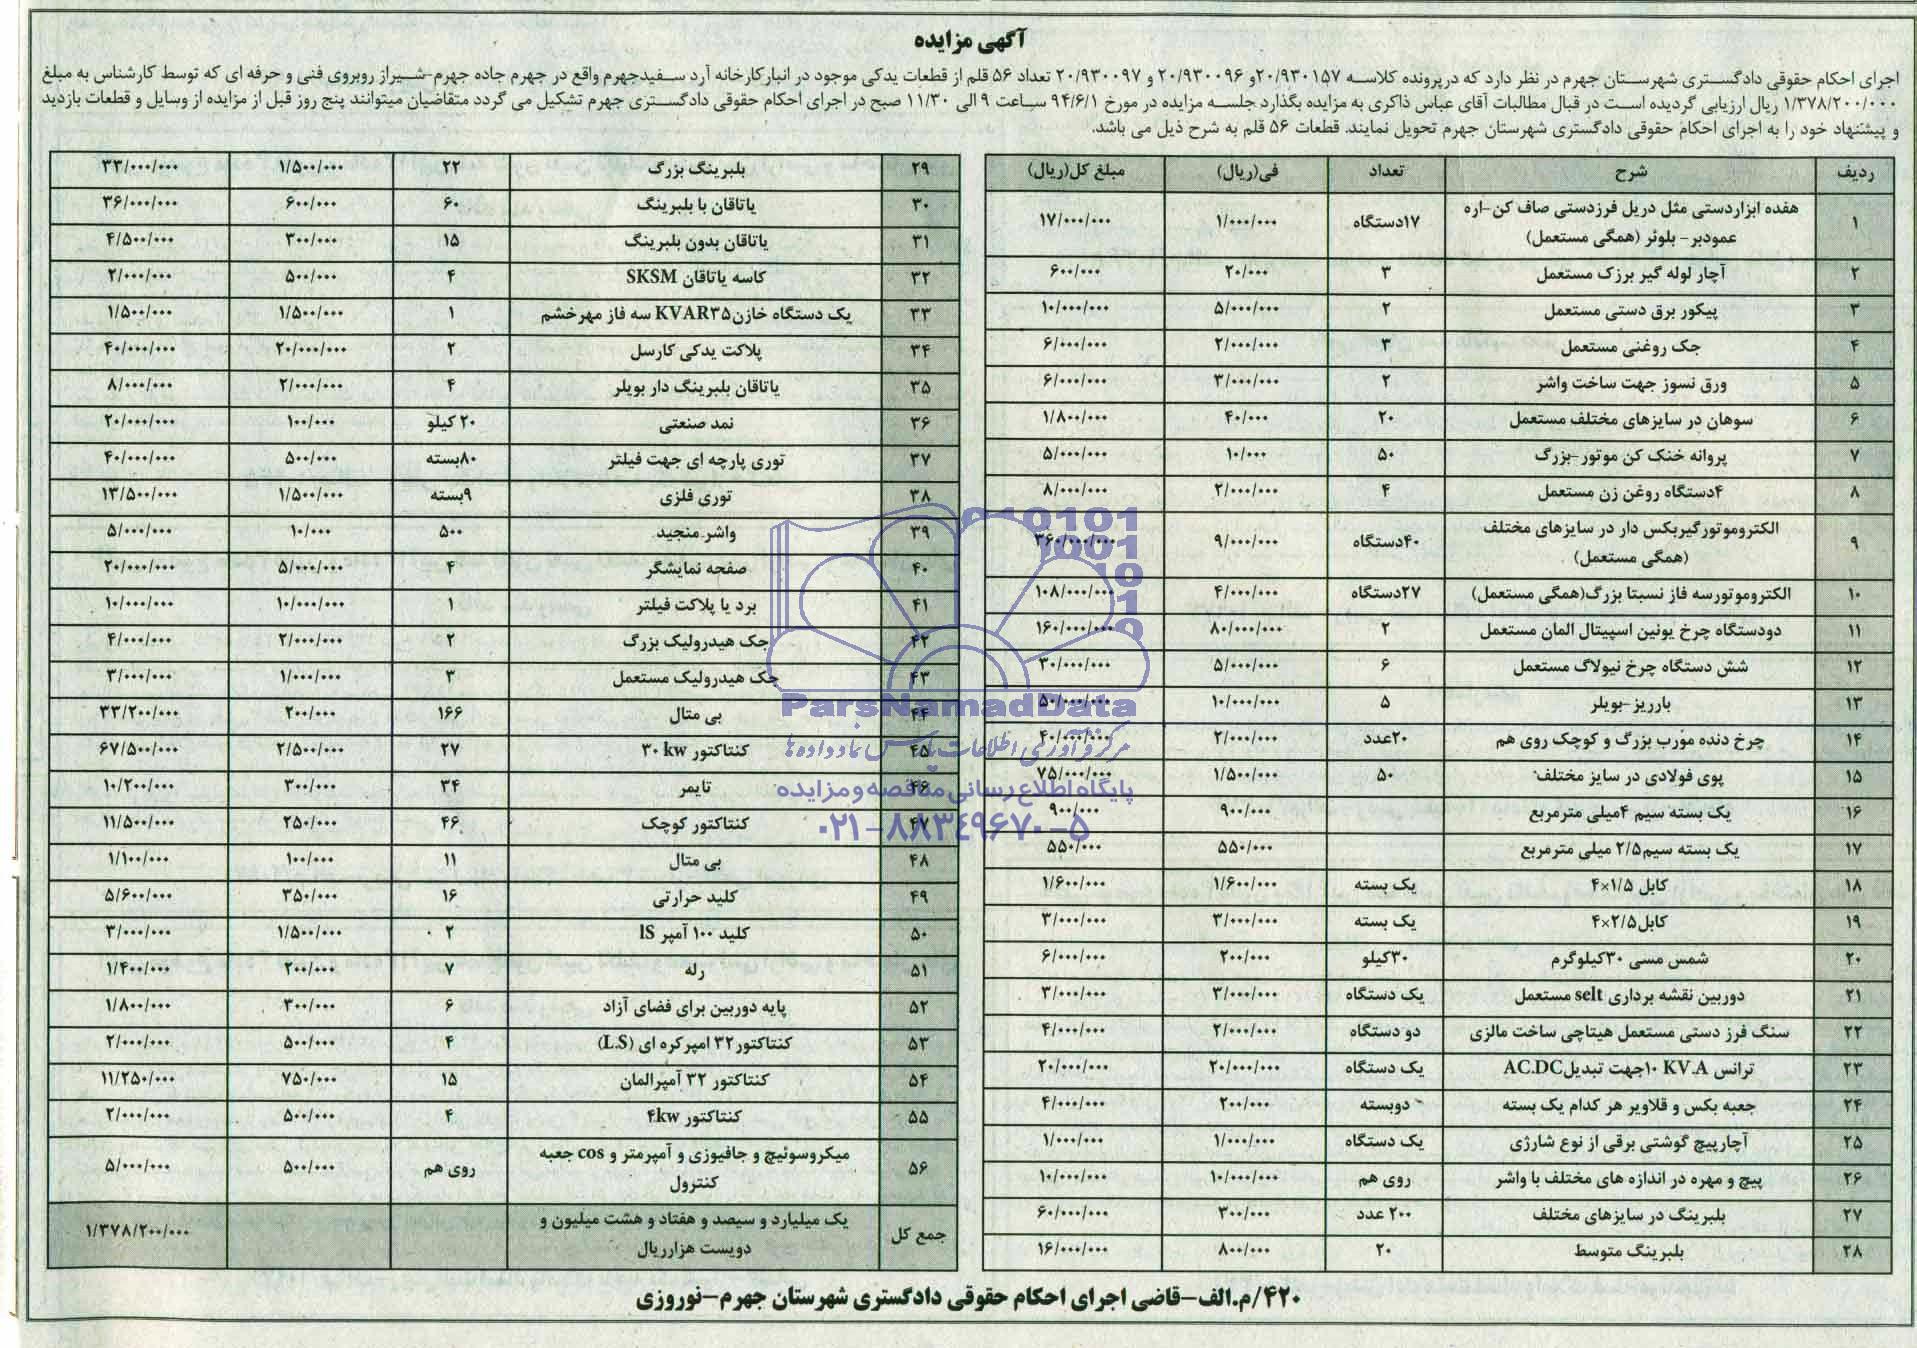 آگهی مزایده
اجرای احکام حقوقی دادگستری شهرستان جهرم در نظر دارد که درپرونده کلاسه ۲۰/۹۳۰۱۵۷و ۲۰/۹۳۰۰۹۶ و ۲۰/۹۳۰۰۹۷ تعداد ۵۶ قلم از قطعات یدکی موجود در انبارکارخانه آرد سفیدجهرم واقع در جهرم جاده جهرم-شیراز روبروی فنی و حرفه ای که توسط کارشناس به مبلغ
۱/۳۷۸/۲۰۰/۰۰۰ ریال ارزیابی گردیده است در قبال مطالبات آقای عباس ذاکری به مزایده بگذارد.جلسه مزایده در مورخ ۹۴/۶/۱ ساعت ۹ الی ۱۱/۳۰ صبح در اجرای احکام حقوقی دادگستری جهرم تشکیل می گردد متقاضیان میتوانند پنج روز قبل از مزایده از وسایل و قطعات بازدید
و پیشنهاد خود را به اجرای احکام حقوقی دادگستری شهرستان جهرم تحویل نمایند. قطعات ۵۶ قلم به شرح ذیل می باشد.
ردیف شرح تعداد فی(ریال) مبلغ کل(ریال)
۱ هفده ابزاردستی مثل دریل فرزدستی صاف کن-اره
عمودبر- بلوئر (همگی مستعمل) ۱۷دستگاه ۱/۰۰۰/۰۰۰ ۱۷/۰۰۰/۰۰۰
۲ آچار لوله گیر برزک مستعمل ۳ ۲۰/۰۰۰ ۶۰۰/۰۰۰
۳ پیکور برق دستی مستعمل ۲ ۵/۰۰۰/۰۰۰ ۱۰/۰۰۰/۰۰۰
۴ جک روغنی مستعمل ۳ ۲/۰۰۰/۰۰۰ ۶/۰۰۰/۰۰۰
۵ ورق نسوز جهت ساخت واشر ۲ ۳/۰۰۰/۰۰۰ ۶/۰۰۰/۰۰۰
۶ سوهان در سایزهای مختلف مستعمل ۲۰ ۴۰/۰۰۰ ۱/۸۰۰/۰۰۰
۷ پروانه خنک کن موتور-بزرگ ۵۰ ۱۰/۰۰۰ ۵/۰۰۰/۰۰۰
۸ ۴دستگاه روغن زن مستعمل ۴ ۲/۰۰۰/۰۰۰ ۸/۰۰۰/۰۰۰
۹ الکتروموتورگیربکس دار در سایزهای مختلف
(همگی مستعمل) ۴۰دستگاه ۹/۰۰۰/۰۰۰ ۳۶۰/۰۰۰/۰۰۰
۱۰ الکتروموتورسه فاز نسبتا بزرگ(همگی مستعمل) ۲۷دستگاه ۴/۰۰۰/۰۰۰ ۱۰۸/۰۰۰/۰۰۰
۱۱ دودستگاه چرخ یونین اسپیتال المان مستعمل ۲ ۸۰/۰۰۰/۰۰۰ ۱۶۰/۰۰۰/۰۰۰
۱۲ شش دستگاه چرخ نیولاگ مستعمل ۶ ۵/۰۰۰/۰۰۰ ۳۰/۰۰۰/۰۰۰
۱۳ بارریز-بویلر ۵ ۱۰/۰۰۰/۰۰۰ ۵۰/۰۰۰/۰۰۰
۱۴ چرخ دنده مورب بزرگ و کوچک روی هم ۲۰عدد ۲/۰۰۰/۰۰۰ ۴۰/۰۰۰/۰۰۰
۱۵ پوی فولادی در سایز مختلف ۵۰ ۱/۵۰۰/۰۰۰ ۷۵/۰۰۰/۰۰۰
۱۶ یک بسته سیم ۴میلی مترمربع ۹۰۰/۰۰۰ ۹۰۰/۰۰۰
۱۷ یک بسته سیم۲/۵ میلی مترمربع ۵۵۰/۰۰۰ ۵۵۰/۰۰۰
۱۸ کابل ۱/۵×۴ یک بسته ۱/۶۰۰/۰۰۰ ۱/۶۰۰/۰۰۰
۱۹ کابل۲/۵×۴ یک بسته ۳/۰۰۰/۰۰۰ ۳/۰۰۰/۰۰۰
۲۰ شمس مسی ۳۰کیلوگرم ۳۰کیلو ۲۰۰/۰۰۰ ۶/۰۰۰/۰۰۰
۲۱ دوربین نقشه برداری selt مستعمل یک دستگاه ۳/۰۰۰/۰۰۰ ۳/۰۰۰/۰۰۰
۲۲ سنگ فرز دستی مستعمل هیتاچی ساخت مالزی دو دستگاه ۲/۰۰۰/۰۰۰ ۴/۰۰۰/۰۰۰
۲۳ ترانس ۱۰ KV.A جهت تبدیلAC.DC یک دستگاه ۲۰/۰۰۰/۰۰۰ ۲۰/۰۰۰/۰۰۰
۲۴ جعبه بکس و قلاویر هر کدام یک بسته دوبسته ۲۰۰/۰۰۰ ۴/۰۰۰/۰۰۰
۲۵ آچارپیچ گوشتی برقی از نوع شارژی یک دستگاه ۱/۰۰۰/۰۰۰ ۱/۰۰۰/۰۰۰
۲۶ پیچ و مهره در اندازه های مختلف با واشر روی هم ۱۰/۰۰۰/۰۰۰ ۱۰/۰۰۰/۰۰۰
۲۷ بلبرینگ در سایزهای مختلف ۲۰۰ عدد ۳۰۰/۰۰۰ ۶۰/۰۰۰/۰۰۰
۲۸ بلبرینگ متوسط ۲۰ ۸۰۰/۰۰۰ ۱۶/۰۰۰/۰۰۰
۲۹ بلبرینگ بزرگ ۲۲ ۱/۵۰۰/۰۰۰ ۳۳/۰۰۰/۰۰۰
۳۰ یاتاقان با بلبرینگ ۶۰ ۶۰۰/۰۰۰ ۳۶/۰۰۰/۰۰۰
۳۱ یاتاقان بدون بلبرینگ ۱۵ ۳۰۰/۰۰۰ ۴/۵۰۰/۰۰۰
۳۲ کاسه یاتاقان SKSM ۴ ۵۰۰/۰۰۰ ۲/۰۰۰/۰۰۰
۳۳ یک دستگاه خازن۳۵KVAR سه فاز مهرخشم ۱ ۱/۵۰۰/۰۰۰ ۱/۵۰۰/۰۰۰
۳۴ پلاکت یدکی کارسل ۲ ۲۰/۰۰۰/۰۰۰ ۴۰/۰۰۰/۰۰۰
۳۵ یاتاقان بلبرینگ دار بویلر ۴ ۲/۰۰۰/۰۰۰ ۸/۰۰۰/۰۰۰
۳۶ نمد صنعتی ۲۰ کیلو ۱۰۰/۰۰۰ ۲۰/۰۰۰/۰۰۰
۳۷ توری پارچه ای جهت فیلتر ۸۰بسته ۵۰۰/۰۰۰ ۴۰/۰۰۰/۰۰۰
۳۸ توری فلزی ۹بسته ۱/۵۰۰/۰۰۰ ۱۳/۵۰۰/۰۰۰
۳۹ واشر منجید ۵۰۰ ۱۰/۰۰۰ ۵/۰۰۰/۰۰۰
۴۰ صفحه نمایشگر ۴ ۵/۰۰۰/۰۰۰ ۲۰/۰۰۰/۰۰۰
۴۱ برد یا پلاکت فیلتر ۱ ۱۰/۰۰۰/۰۰۰ ۱۰/۰۰۰/۰۰۰
۴۲ جک هیدرولیک بزرگ ۲ ۲/۰۰۰/۰۰۰ ۴/۰۰۰/۰۰۰
۴۳ جک هیدرولیک مستعمل ۳ ۱/۰۰۰/۰۰۰ ۳/۰۰۰/۰۰۰
۴۴ بی متال ۱۶۶ ۲۰۰/۰۰۰ ۳۳/۲۰۰/۰۰۰
۴۵ کنتاکتور ۳۰ kw ۲۷ ۲/۵۰۰/۰۰۰ ۶۷/۵۰۰/۰۰۰
۴۶ تایمر ۳۴ ۳۰۰/۰۰۰ ۱۰/۲۰۰/۰۰۰
۴۷ کنتاکتور کوچک ۴۶ ۲۵۰/۰۰۰ ۱۱/۵۰۰/۰۰۰
۴۸ بی متال ۱۱ ۱۰۰/۰۰۰ ۱/۱۰۰/۰۰۰
۴۹ کلید حرارتی ۱۶ ۳۵۰/۰۰۰ ۵/۶۰۰/۰۰۰
۵۰ کلید ۱۰۰ آمپر lS ۲ ۱/۵۰۰/۰۰۰ ۳/۰۰۰/۰۰۰
۵۱ رله ۷ ۲۰۰/۰۰۰ ۱/۴۰۰/۰۰۰
۵۲ پایه دوربین برای فضای آزاد ۶ ۳۰۰/۰۰۰ ۱/۸۰۰/۰۰۰
۵۳ کنتاکتور۳۲ امپرکره ای (L.S) ۴ ۵۰۰/۰۰۰ ۲/۰۰۰/۰۰۰
۵۴ کنتاکتور ۳۲ آمپرالمان ۱۵ ۷۵۰/۰۰۰ ۱۱/۲۵۰/۰۰۰
۵۵ کنتاکتور ۴kw ۴ ۵۰۰/۰۰۰ ۲/۰۰۰/۰۰۰
۵۶ میکروسوئیچ و جافیوزی و آمپرمتر و cos جعبه
کنترول روی هم ۵۰۰/۰۰۰ ۵/۰۰۰/۰۰۰
جمع کل یک میلیارد و سیصد و هفتاد و هشت میلیون و
دویست هزارریال ۱/۳۷۸/۲۰۰/۰۰۰
۴۲۰/م.الف-قاضی اجرای احکام حقوقی دادگستری شهرستان جهرم-نوروزی
ParsNamadData
مرکز فرآوری اطلاعات پارس نماد داده ها
پایگاه اطلاع رسانی مناقصه و مزایده
۰۲۱-۸۸۳۴۹۶۷۰-۵